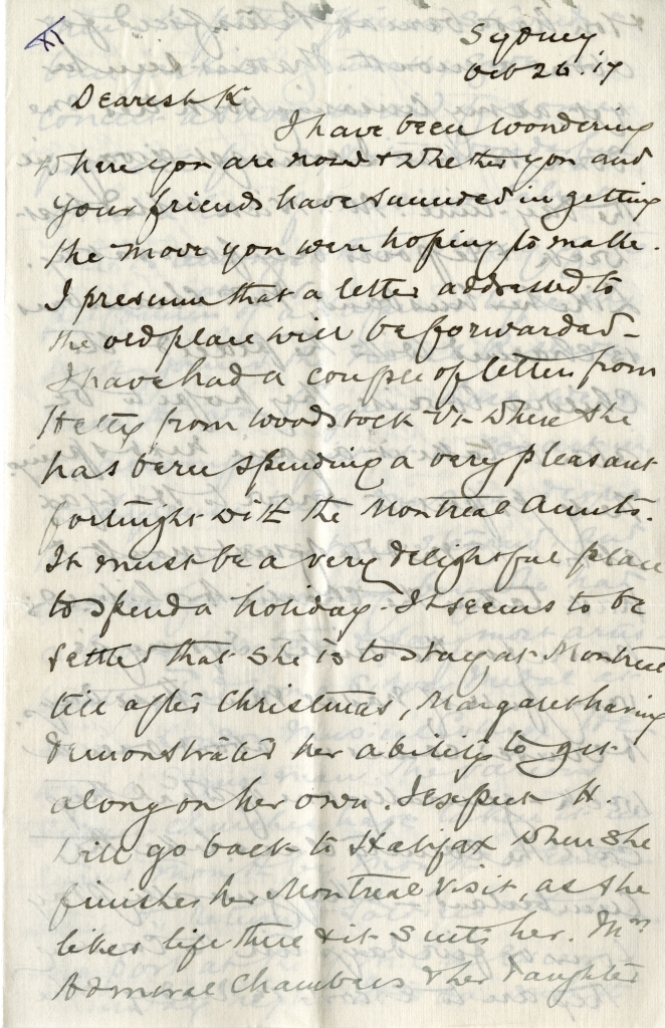 XI
Sydney
Oct 26. 17
Dearest K
I have been wondering
where you are now & whether you and
your friends have succeeded in getting
the move you were hoping to make.
I presume that a letter addressed to
the old place will be forwarded -
I have had a couple of letters from
Hetty from Woodstock Vt where she
has been spending a very pleasant
fortnight with the Montreal Aunts.
It must be a very delightful place
to spend a holiday. It seems to be
settled that she is to stay at Montreal
till after Christmas, Margaret having
demonstrated her ability to get
along on her own. I expect H.
will go back to Halifax when she
finishes her Montreal visit, as she
likes life there & it suits her. Mrs
Admiral Chambers & her daughter